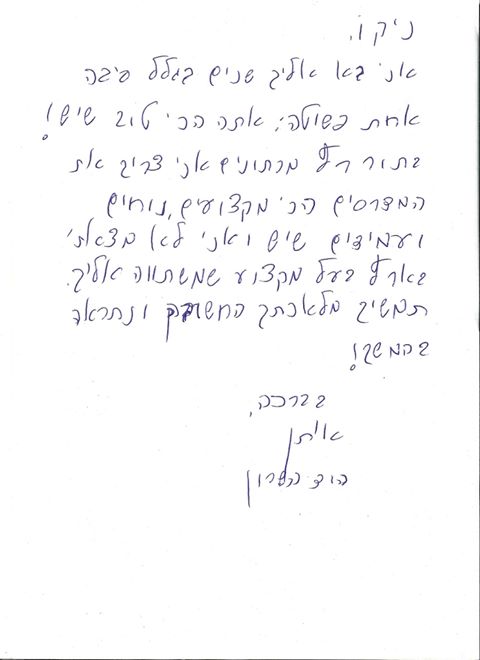 ניקו,
אני בא אליך שנים בגלל סיבה
אחת פשוטה; אתה הכי טוב שיש!
בתור רץ מרתונים אני צריך את
המדרסים הכי מקצועים, נוחים
ועמידים שיש ואני לא מצאתי
בארץ בעל מקצוע שמשתווה אליך.
תמשיך מלאכתך החשובה ונתראה
בהמשך!
בברכה,
איתן
הוד השרון